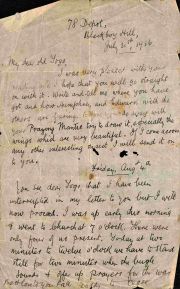 78 Depot,
Blackboy Hill,
July 30th 1916
My dear old Toga
I was very pleased with your
I hope that you will go straight
on with it. Write and tell me where you have
got and how Hampshire, and Edinson with do
others are faring.
your Praying Mantis try to draw it especially the
wings which are very beautiful. If I come across
any other interesting insect I will send it on
to you.
Friday, Aug 4th
You see dear Toga, that I have been
interrupted in my letter to you but I will
now proceed. I was up early this morning
& went to church at 7 o'clock. There were
only four of us present. Today at two
minutes to twelve o'clock we have to stand
still for two minutes while the bugle
sounds & offer up prayers for the war